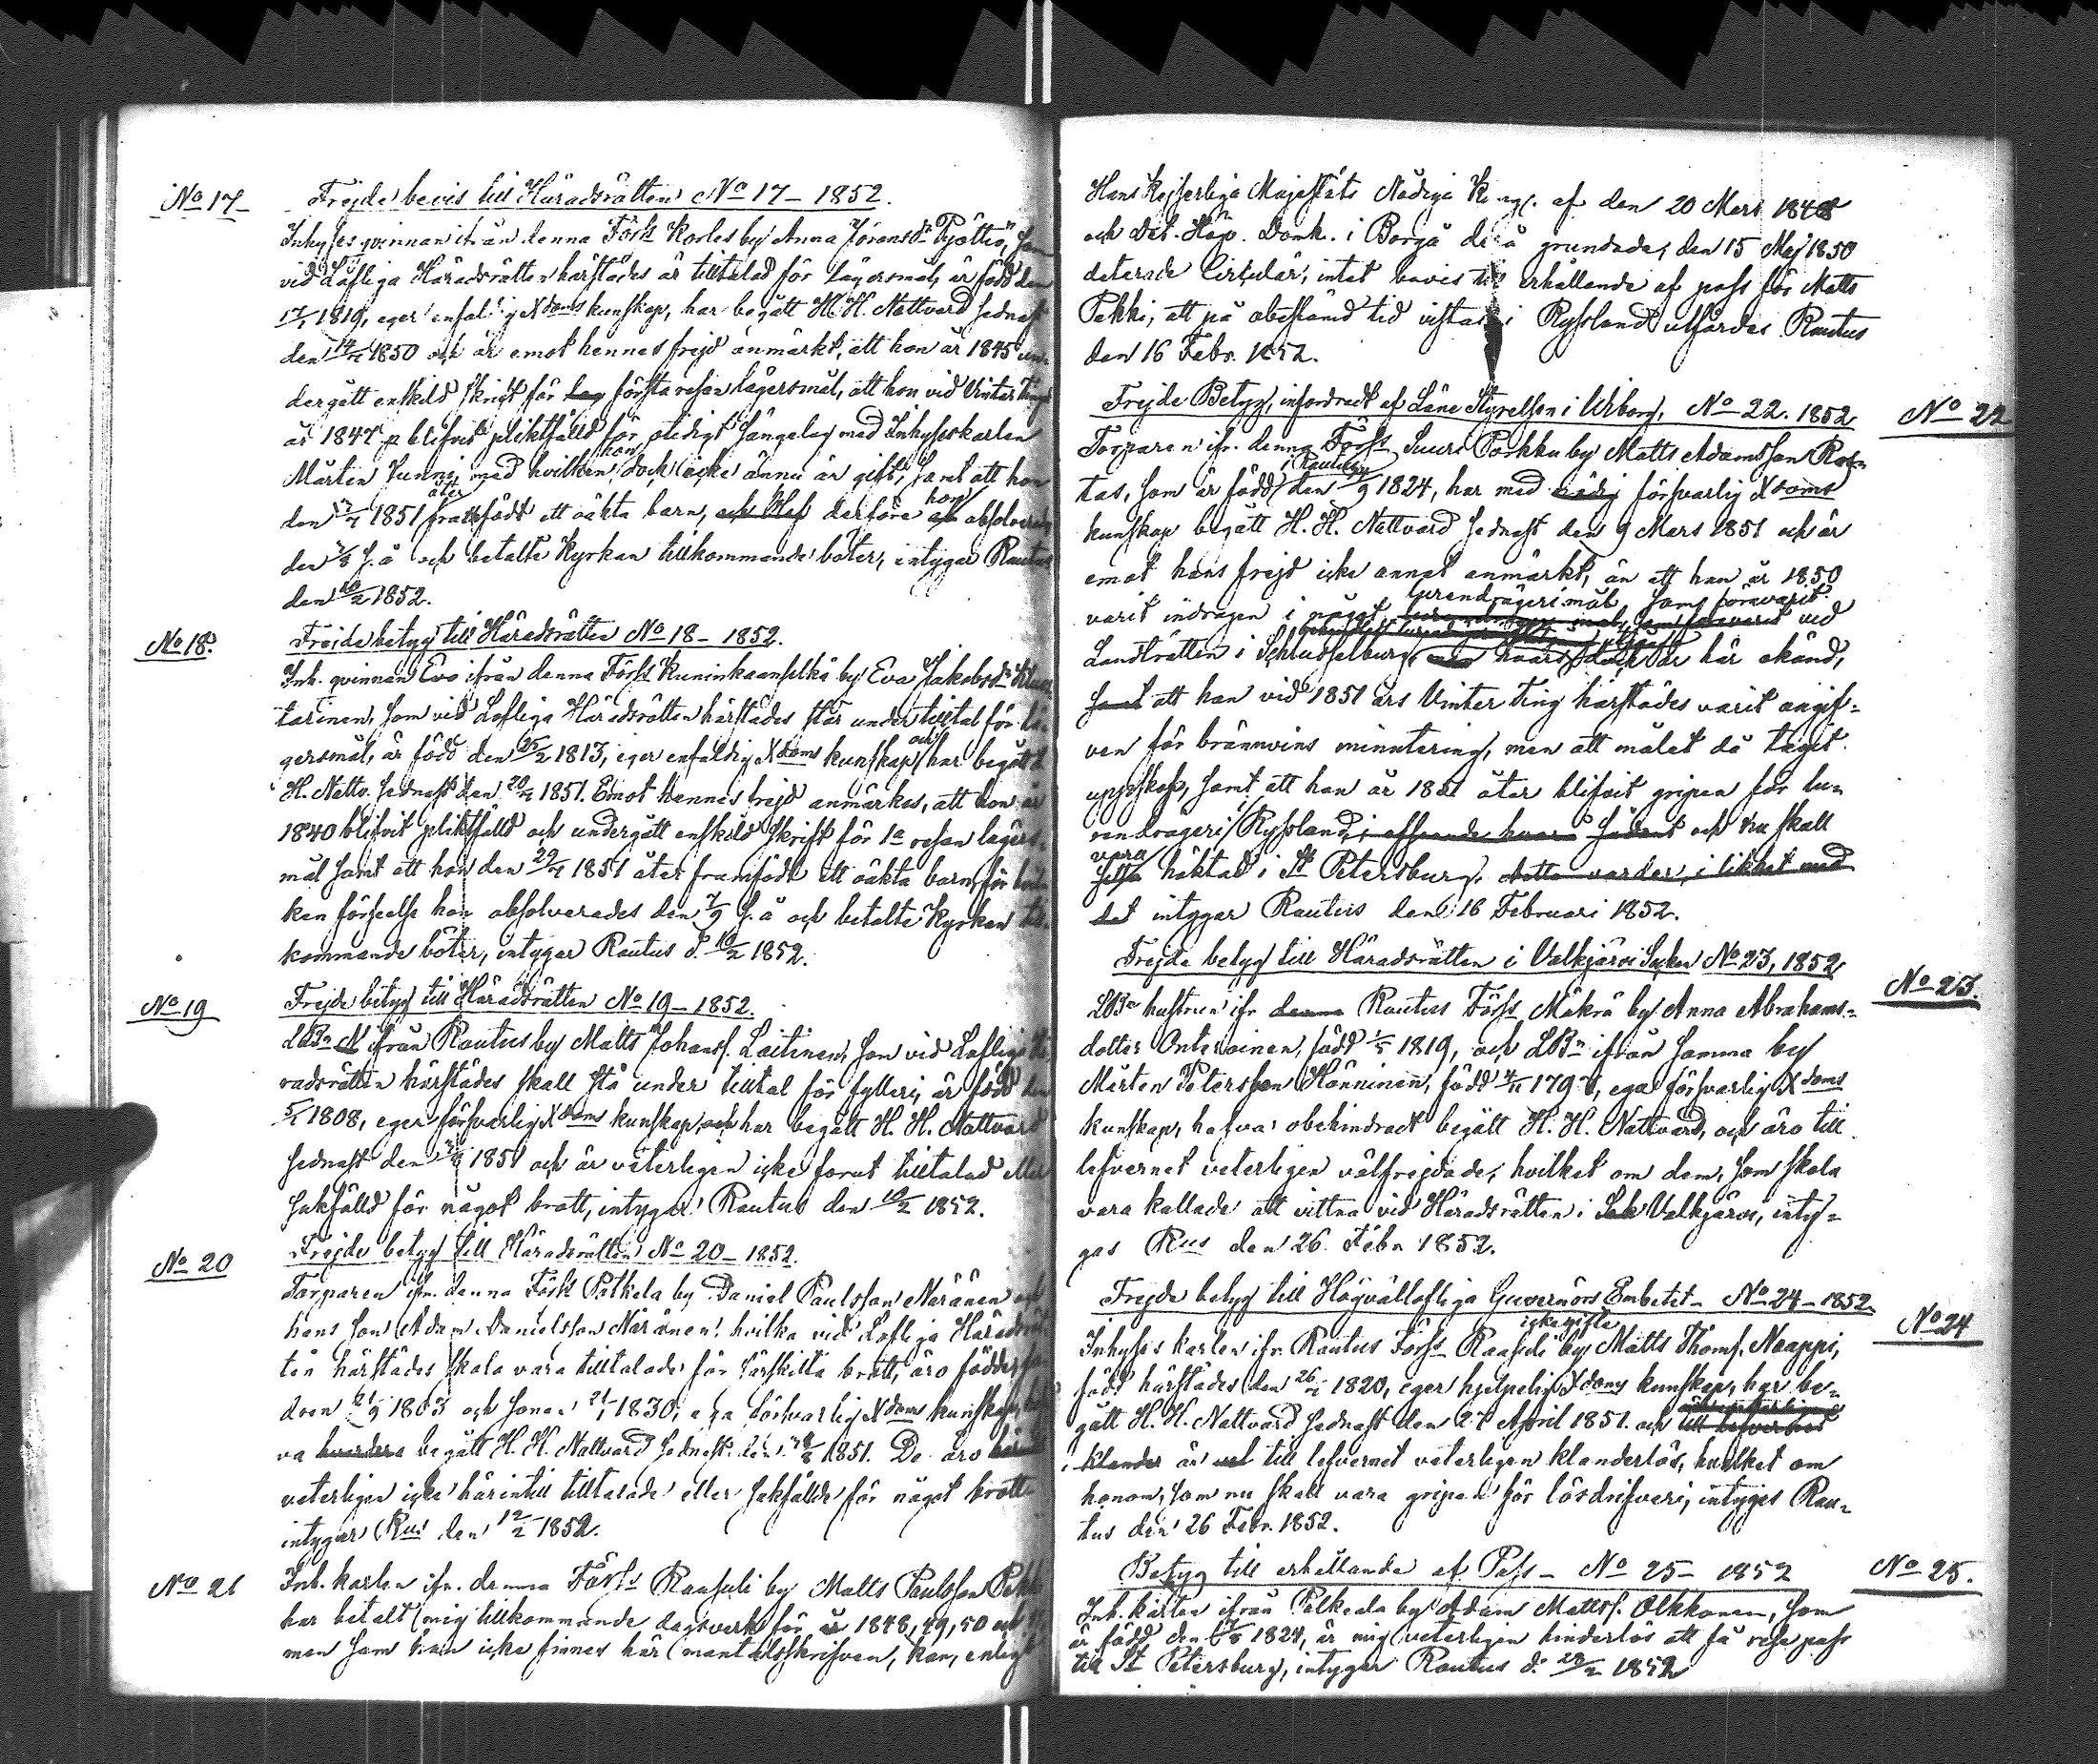 No 17 Frejde bevis till Häradsrätten No 17 - 1852.
Inhyses qvinnan ifrån denna Förs Korles by Anna Göransdr Pyöttiö, som
vid Lofliga Häradsrätten härstädes är tilltalad för lägersmål, är född den
1819, eger enfaldig Xdoms kunskap, har begått H. H. Nattvard sednast
den 1850 och är emot hennes frejd anmärkt, att hon år 1845 un-
dergått enskild skrift för första resan lägersmål, att hon vid Vinter Tinget
år 1847 blifvit pliktfälld för otidigt sängelag med Inhyseskarlen
Mårten Junni, med hvilken hon dock icke ännu är gift, samt att hon
den 1851 åter framfödt ett oäkta barn, derföre hon absolverades
den s. å. och betalte Kyrkan tillkommande böter, intygar Rautus
den 10/2 1852.
No 18. Frejdebetyg till Häradsrätten No 18 - 1852.
Inh. qvinnan Eva ifrån denna Förs Kuninkaanselkä by Eva Jakobsdr
tarinen, som vid Lofliga Häradsrätten härstädes står under tilltal för lä-
gersmål, är född den 25/2 1813, eger enfaldig Xdoms kunskap, och har begått H.
H. Nattv. sednast den 1851. Emot hennes frejd anmärkes, att hon år
1840 blifvit pliktfälld och undergått enskild skrift för 1a resan lägers-
mål samt att hon den 1851 åter framfödt ett oäkta barn, för hvil-
ken förseelse hon absolverades den 7/9 s. å och betalte Kyrkan till-
kommande böter, intygar Rautus d. 10/2 1852.
No 19 Frejde betyg till Häradsrätten No 19 - 1852.
LBn ifrån Rautus by Matts Johanss. Laitinen, som vid Lofliga Hä-
radsrätten härstädes skall stå under tilltal för fylleri, är född den
1808, eger försvarlig Xdoms kunskap, och har begått H. H. Nattvard
sednast den 1851 och är veterligen icke förut tilltalad eller
sakfälld för något brott, intygar Rautus den 10/2 1852.
No 20 Frejde betyg till Häradsrätten No 20 - 1852.
Torparen ifr. denna Förs Potkela by Daniel Paulsson Näränen och
hans son Adam Danielsson Näränen, hvilka vid Lofliga Häradsrät-
ten härstädes skola vara tilltalade för särskilta brott, äro födde, fa-
dren 1803 och sonen 1830, ega försvarlig Xdoms kunskap, haf-
va begått H. H. Nattvard sednast den 1851. De äro
veterligen icke härintill tilltalade eller sakfällde för något brott
intygar Rus den 12/2 1852.
No 21 Inh. karlen ifr. denna Förs Raasuli by Matts Paulsson Pekki
har betalt mig tillkommande dagsverk för år 1848, 49, 50 och
men som han icke finnes här mantalsskrifven, kan, enligt
Hans Kejserliga Majestäts Nådiga af den 20 Mars 1848
och det Höv. Domk. i Borgå derå grundade, den 15 Maj 1850
daterade Cirkulär, intet bevis till erhållande af pass för Matts
Pekki, att på obestämd tid vistas i Ryssland utfärdas. Rautus
den 16 Febr. 1852.
Frejde Betyg, infordradt af Läne Styrelsen i Wiborg, No 22. 1852 No 22
Torparen ifr. denna Förs Suuri Porkku by Matts Adamsson
tas, som är född i Rautus den 1824, har med försvarlig Xdoms
kunskap begått H. H. Nattvard sednast den 9 Mars 1851 och är
emot hans frejd icke annat anmärkt, än att han år 1850
varit indragen i något lurendrägerimål, som förevarit vid
Landträtten i Schlusselburg, hvars utgång dock är här okänd,
samt att han vid 1851 års Vinter Ting härstädes varit angif-
ven för brännvins minutering, men att målet då taget
uppskof, samt att han år 1851 åter blifvit gripen för lu-
rendrägeri i Ryssland, och nu skall
vara häktad i St Petersburg,
intygar Rautus den 16 Februari 1852.
Frejde betyg till Häradsrätten i Valkjärvi Socken No 23, 1852 No 23.
LBe hustrun ifr Rautus Förs Mäkrä by Anna Abrahams-
dotter Onteroinen, född 1819, och LBn ifrån samma by
Mårten Petersson Hänninen, född 179, ega försvarlig Xdoms
kunskap, hafva obehindradt begått H. H. Nattvard, och äro till
lefvernet veterligen välfrejdade, hvilket om dem, som skola
vara kallade att vittna vid Häradsrätten i Valkjärvi, inty-
gas Rus den 26 Febr. 1852.
Frejde betyg till Högvällofliga Guvernörs Embetet - No 24 - 1852. No 24
Inhyses karlen ifr Rautus Förs Raasuli by icke gifte Matts Thomss. Naappi,
född härstädes den 1820, eger hjelpelig Xdoms kunskap, har be-
gått H. H. Nattvard sednast den 27 April 1851. och
är till lefvernet veterligen klanderlös, hvilket om
honom, som nu skall vara gripen för lösdrifveri, intygas Rau-
tus den 26 Febr. 1852.
Betyg till erhållande af Pass - No 25 - 1852 No 25.
Inh. karlen ifrån Palkeala by Adam Mattss. Olkkonen, som
är född den 1824, är mig veterligen hinderlös att få resepass
till St Petersburg, intygar Rautus d. 28/2 1852